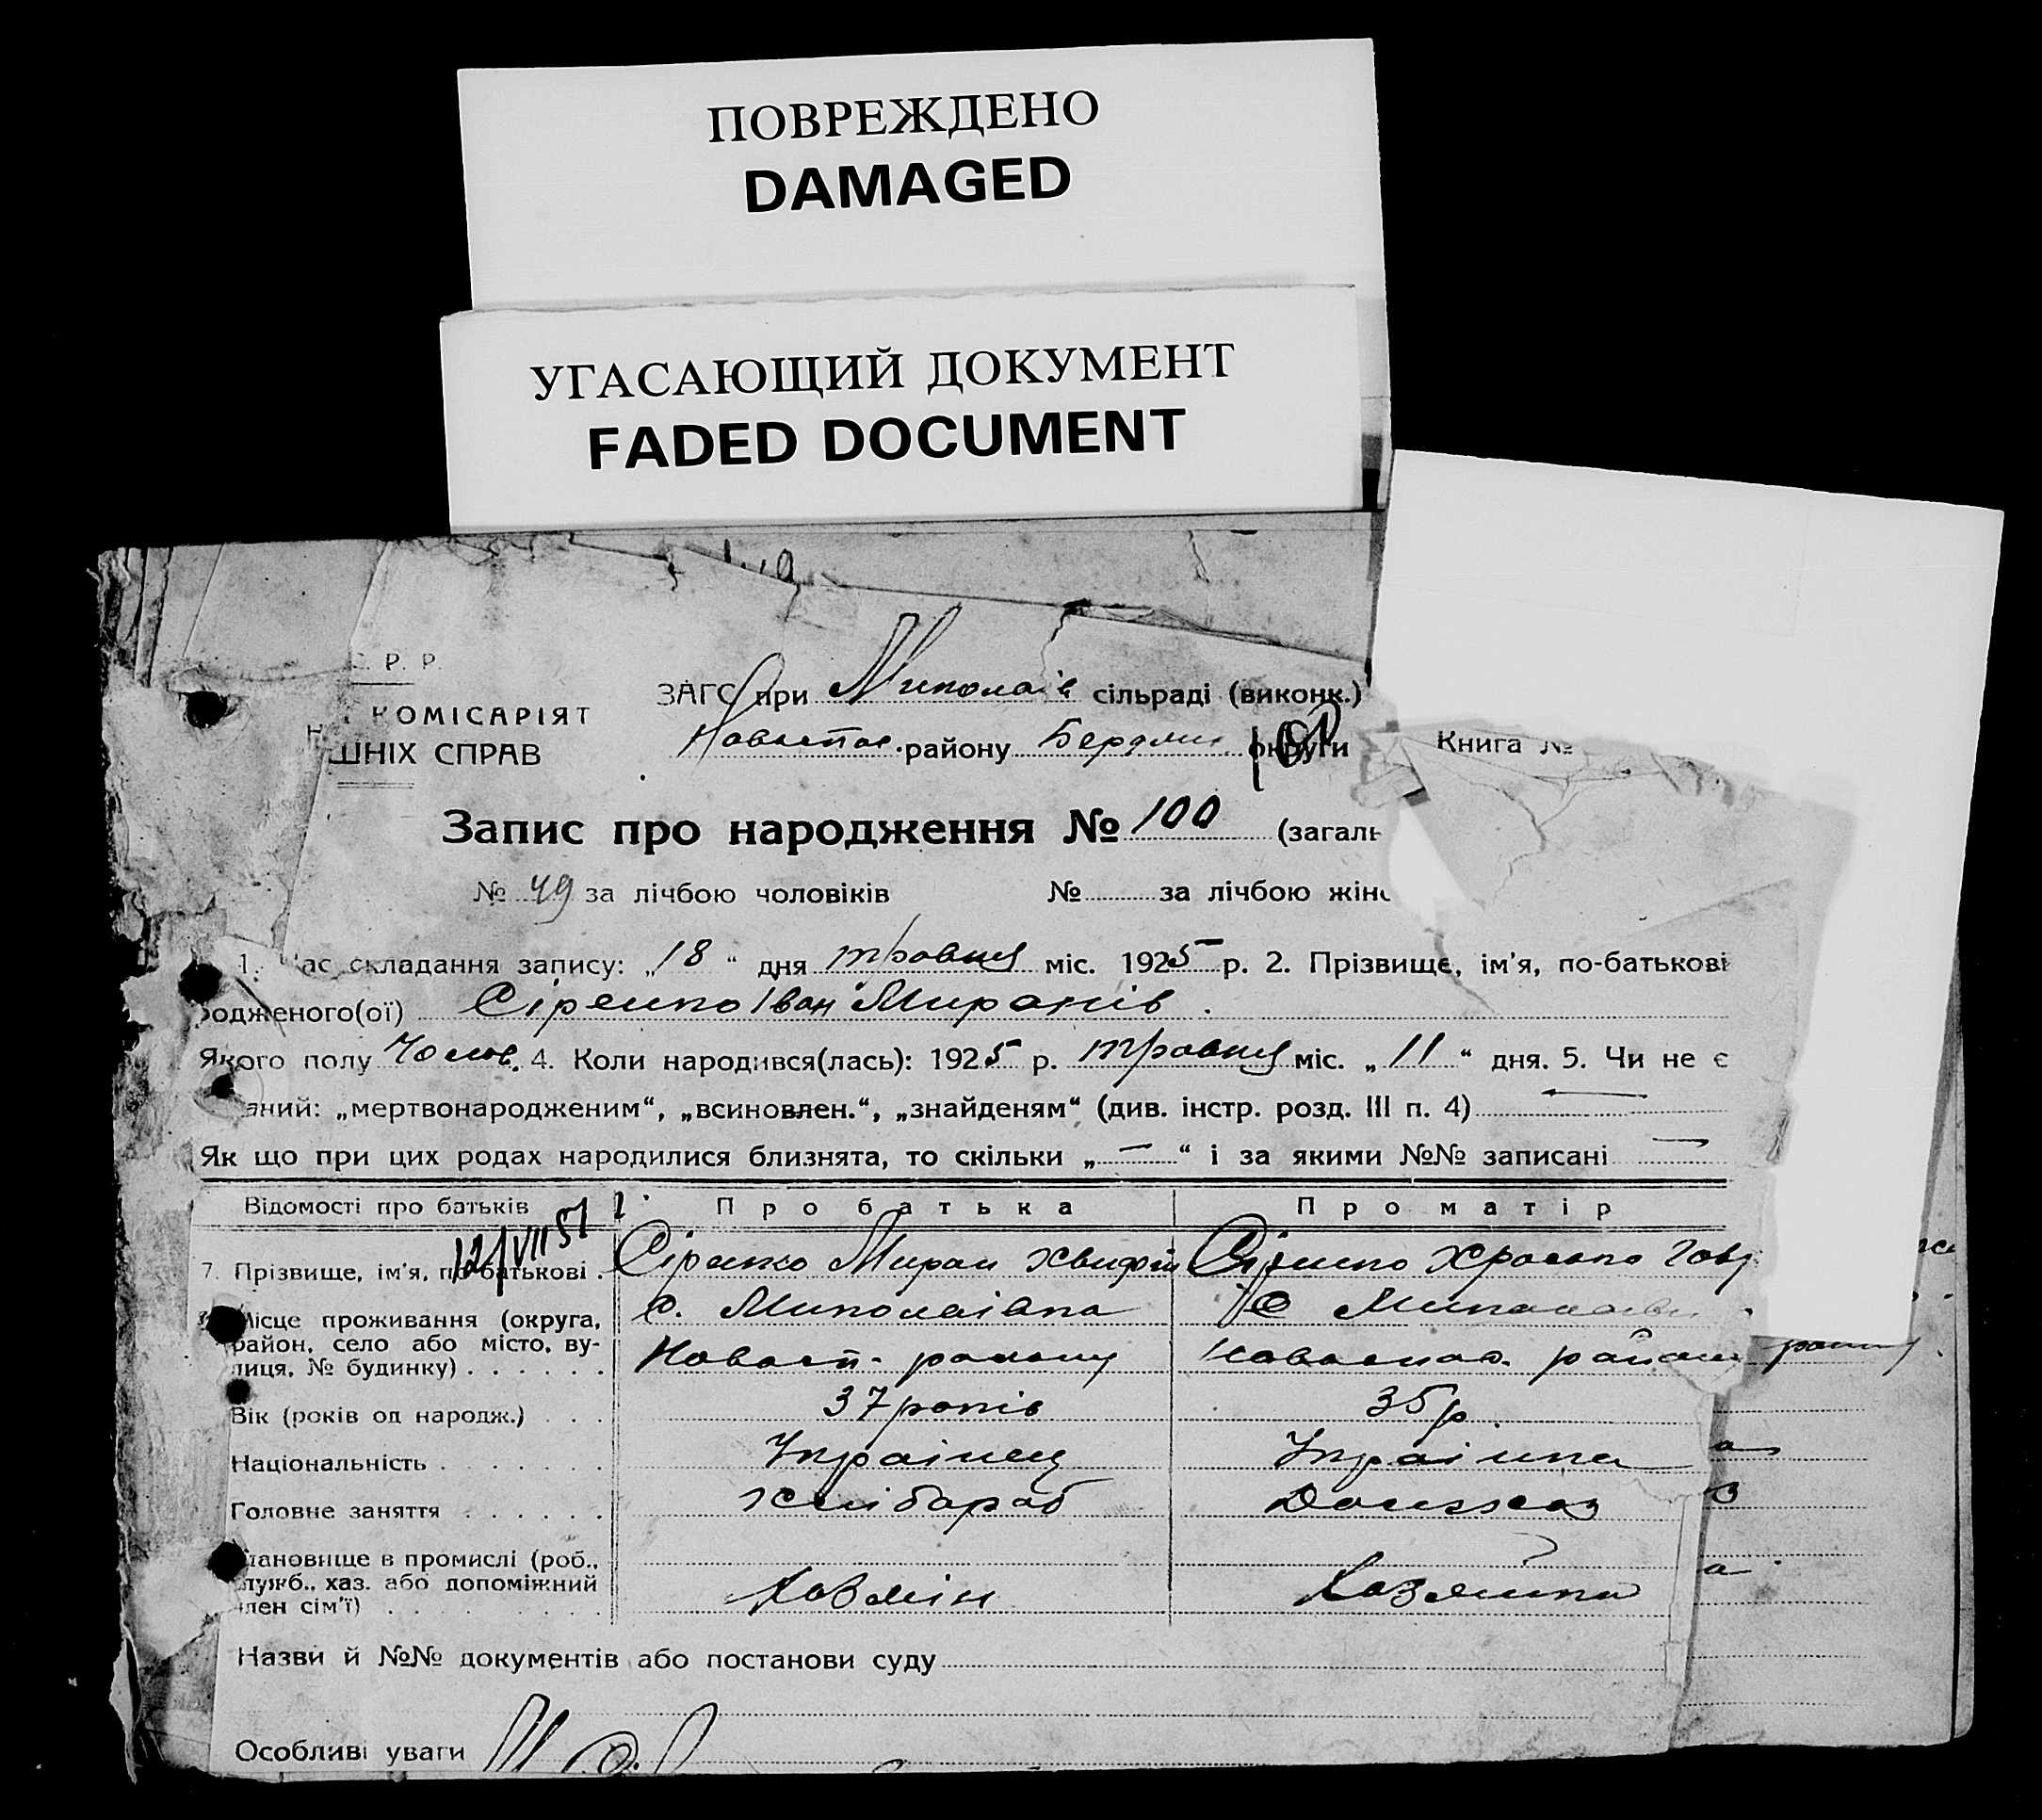 ПОВРЕЖДЕНО
DAMAGED
УГАСАЮЩИЙ ДОКУМЕНТ
FADED DOCUMENT
Р. Р.
КОМІСАРІЯТ
ШНІХ СПРАВ
ЗАГС при Миколаїв сільраді (виконк.)
Новоспас. району Бердян округи
Книга №
Запис про народження № 100 (загаль
№ 49 за лічбою чоловіків № за лічбою жінс
1. Час складання запису: „18“ дня травня міс. 1925 р. 2. Прізвище, ім'я, по-батькові
родженого(ої) Сіренко Іван Миронів.
Якого полу Чолов. 4. Коли народився(лась): 1925 р. травня міс. „11“ дня. 5. Чи не є
аний: „мертвонародженим“, „всиновлен.“, „знайденям“ (див. інстр. розд. III п. 4) —
Як що при цих родах народилися близнята, то скільки „—“ і за якими №№ записані —
Відомості про батьків Про батька Про матір
12/VII 51
7. Прізвище, ім'я, по-батькові . Сіренко Мирон Сіренко
Місце проживання (округа, с. Миколаівка с
район, село або місто, ву-
лиця, № будинку) . . . . . . Новосп. району Новоспас. району
Вік (років од народж.) . . . 37 років 35 р.
Національність . . . . . . . Украінец Украінка
Головне заняття . . . . . . хлібороб Домхоз
тановище в промислі (роб.,
служб., хаз. або допоміжний
член сім'ї) . . . . . . . . Хозяїн Хозяйка
Назви й №№ документів або постанови суду
Особливі уваги